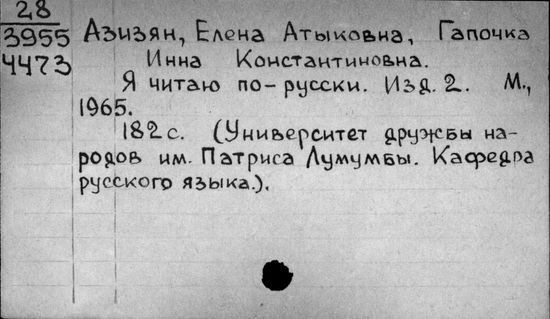 28
3955
4473
Азизян, Елена Атыковна, Гапочка
Инна Константиновна.
Я читаю по-русски. Изд. 2. М.,
1965.
182 с. (Университет дружбы на-
родов им. Патриса Лумумбы. Кафедра
русского языка.).